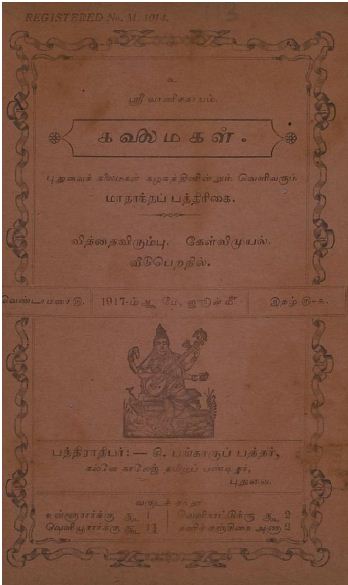 REGISTERED No. M. 1014.
உ
ஸ்ரீ வாணிசகாயம்.
கலைமகள்.
புதுவைக் கலைமகள் கழகத்தினின்றும் வெளிவரும்
மாதாந்தப் பத்திரிகை.
வித்தைவிரும்பு. கேள்விமுயல்.
வீடுபெறநில்.
1917-ம் ஆ மே, ஜூன் மீ
இதழ்
பத்திராதிபர்: — சி. பங்காருப் பத்தர்,
கல்வே காலேஜ் தமிழ்ப் பண்டிதர்,
புதுவை.
வருடச் சந்தா
உள்ளூரார்க்கு ரூ 1
வெளிநாட்டுக்கு ரூ 2
வெளியூரார்க்கு ரூ 1½
தனிச் சஞ்சிகை அணா 2